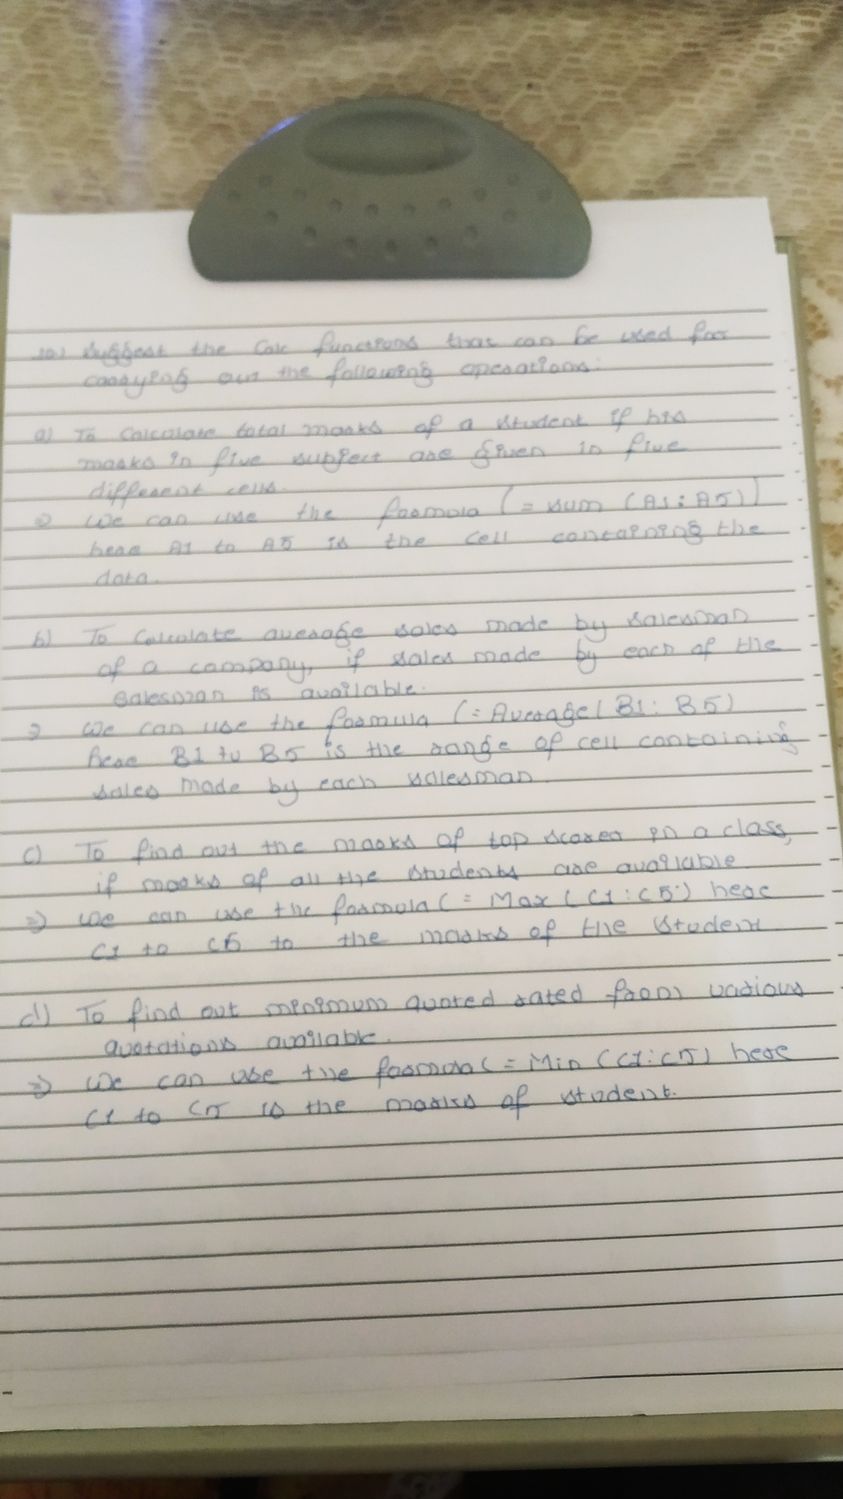 10) Suggest the Calc functions that can be used for
carrying out the following operations:
a) To Calculate total marks of a student if his
marks in five subject are given in five
different cells.
⇒ We can use the formula (= sum (A1:A5))
here A1 to A5 is the cell containing the
data.
b) To Calculate average sales made by salesman
of a company, if sales made by each of the
salesman is available.
⇒ We can use the formula (= Average( B1: B5)
here B1 to B5 is the range of cell containing
sales made by each salesman.
c) To find out the marks of top scorer in a class,
if marks of all the students are available
⇒ We can use the formula (= Max (C1:C5) here
C1 to C5 to the marks of the student
d) To find out minimum quoted rated from various
quotations available.
⇒ We can use the formula (= Min (C1:C5) here
C1 to C5 is the marks of student.